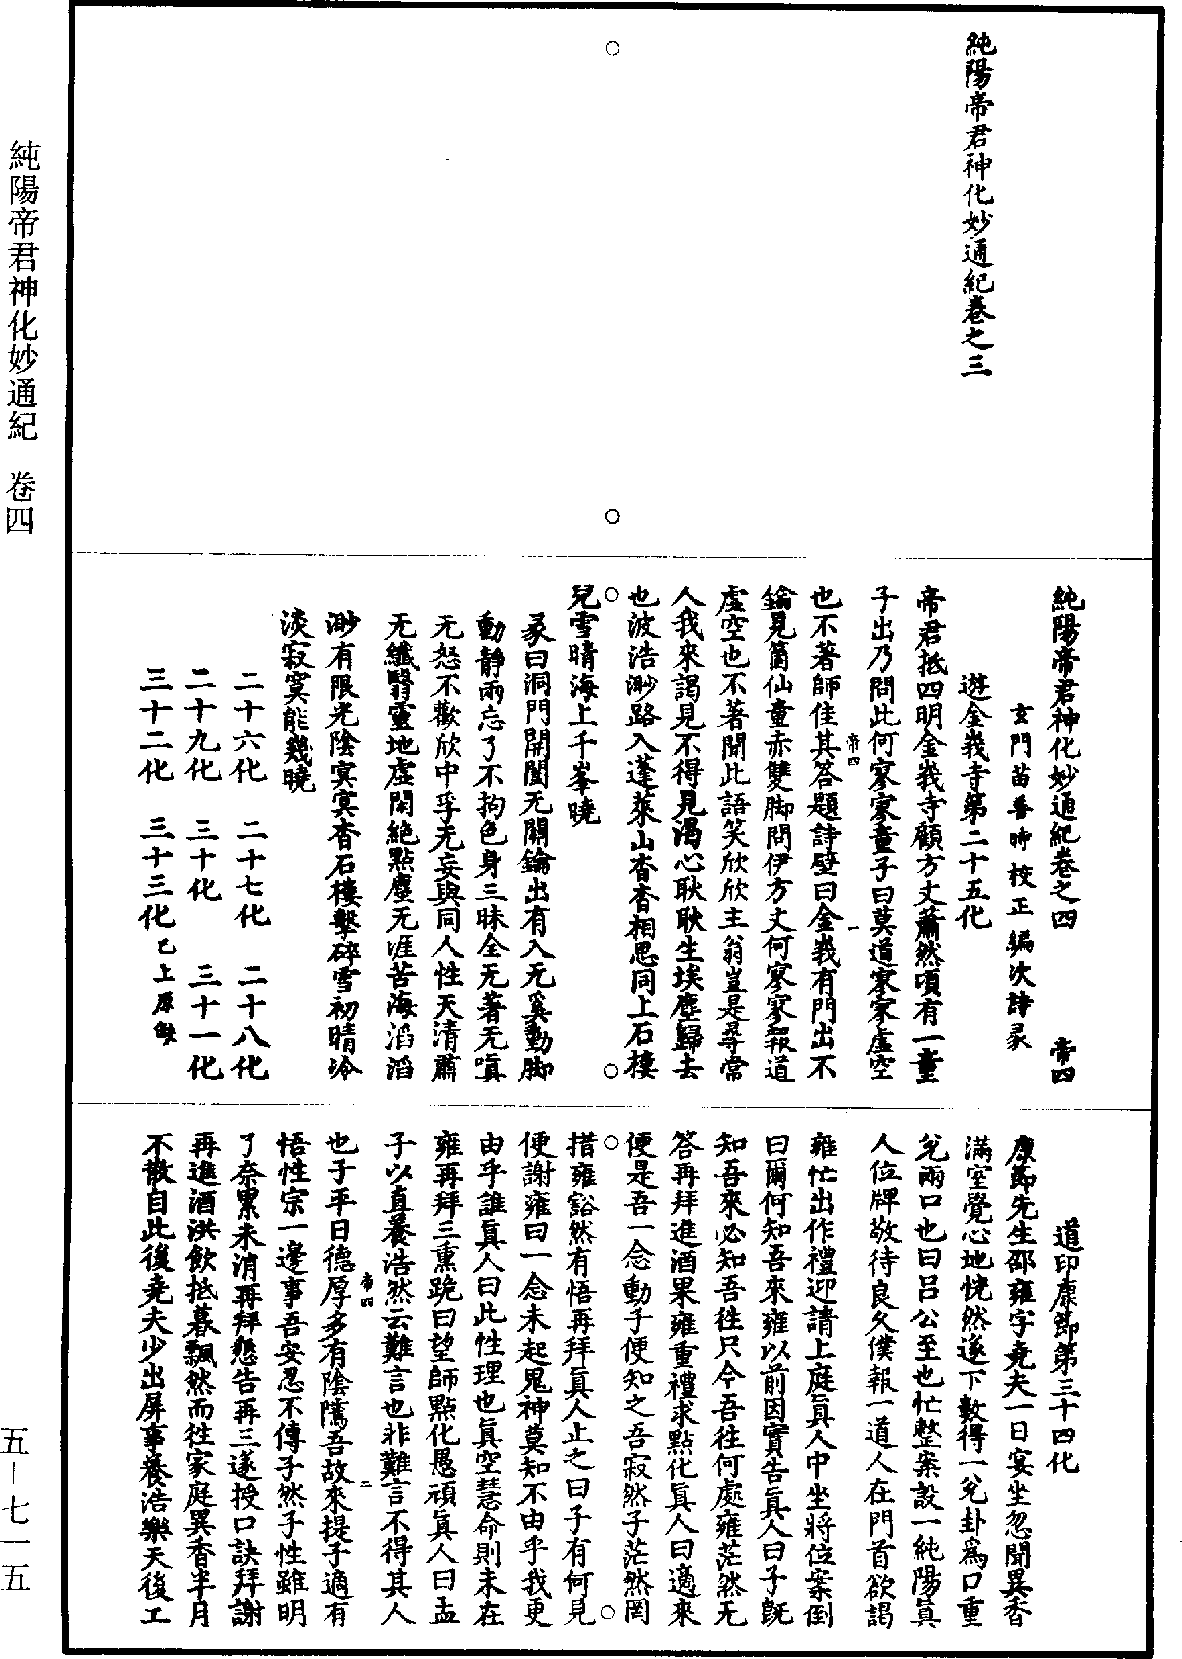 純陽帝君神化妙通紀卷之三
純陽帝君神化妙通紀卷之四 帝四
玄門苗善時校正編次詩彖
遊金峩寺第二十五化
帝君抵四明金峩寺顧方丈蕭然頃有一童
子出乃問此何寥寥童子曰莫道寥寥虛空
也不著師佳其答題詩壁曰金峩有門出不
鑰見箇仙童赤雙脚問伊方丈何寥寥報道
虛空也不著聞此語笑欣欣主翁豈是尋常
人我來謁見不得見渴心耿耿生埃塵歸去
也波浩渺路入蓬萊山杳杳相思同上石樓
兒雪晴海上千峯曉
彖曰洞門開闔无關鑰出有入无奚動脚
動靜兩忘了不拘色身三昧全无著无嗔
无怒不歡欣中孚无妄與同人性天清肅
无纖翳靈地虛閑絶點塵无涯苦海滔滔
渺有限光陰冥冥杳石樓擊碎雪初晴冷
淡寂寞能幾曉
二十六化 二十七化 二十八化
二十九化 三十化 三十一化
三十二化 三十三化已上原缺
帝四 一
道印康節第三十四化
康節先生邵雍字堯夫一日宴坐忽聞異香
滿室覺心地恍然遂下數得一兊卦爲口重
兊兩口也曰呂公至也忙整案設一純陽眞
人位牌敬待良久僕報一道人在門首欲謁
雍忙出作禮迎請上庭眞人中坐將位案倒
曰爾何知吾來雍以前因實告眞人曰子旣
知吾來必知吾往只今吾往何處雍茫然无
答再拜進酒果雍重禮求點化眞人曰適來
便是吾一念動子便知之吾寂然子茫然罔
措雍豁然有悟再拜眞人止之曰子有何見
便謝雍曰一念未起鬼神莫知不由乎我更
由乎誰眞人曰此性理也眞空慧命則未在
雍再拜三熏跪曰望師點化愚頑眞人曰孟
子以直養浩然云難言也非難言不得其人
也子平日德厚多有陰隲吾故來提子適有
悟性宗一邊事吾安忍不傳子然子性雖明
了奈累未消再拜懇告再三遂授口訣拜謝
再進酒洪飲抵暮飄然而徃家庭異香半月
不散自此後堯夫少出屏事養浩樂天後工
帝四 二
純陽帝君神化妙通紀 卷四
五—七一五